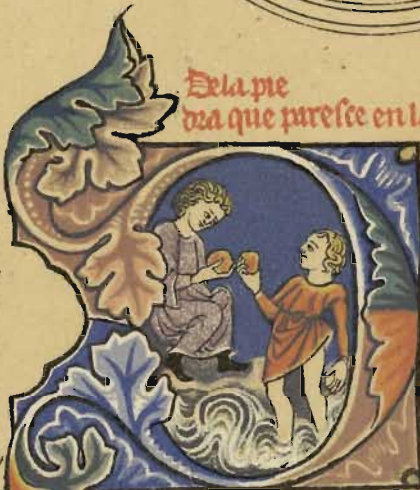 De la pie
dra que paresce en l